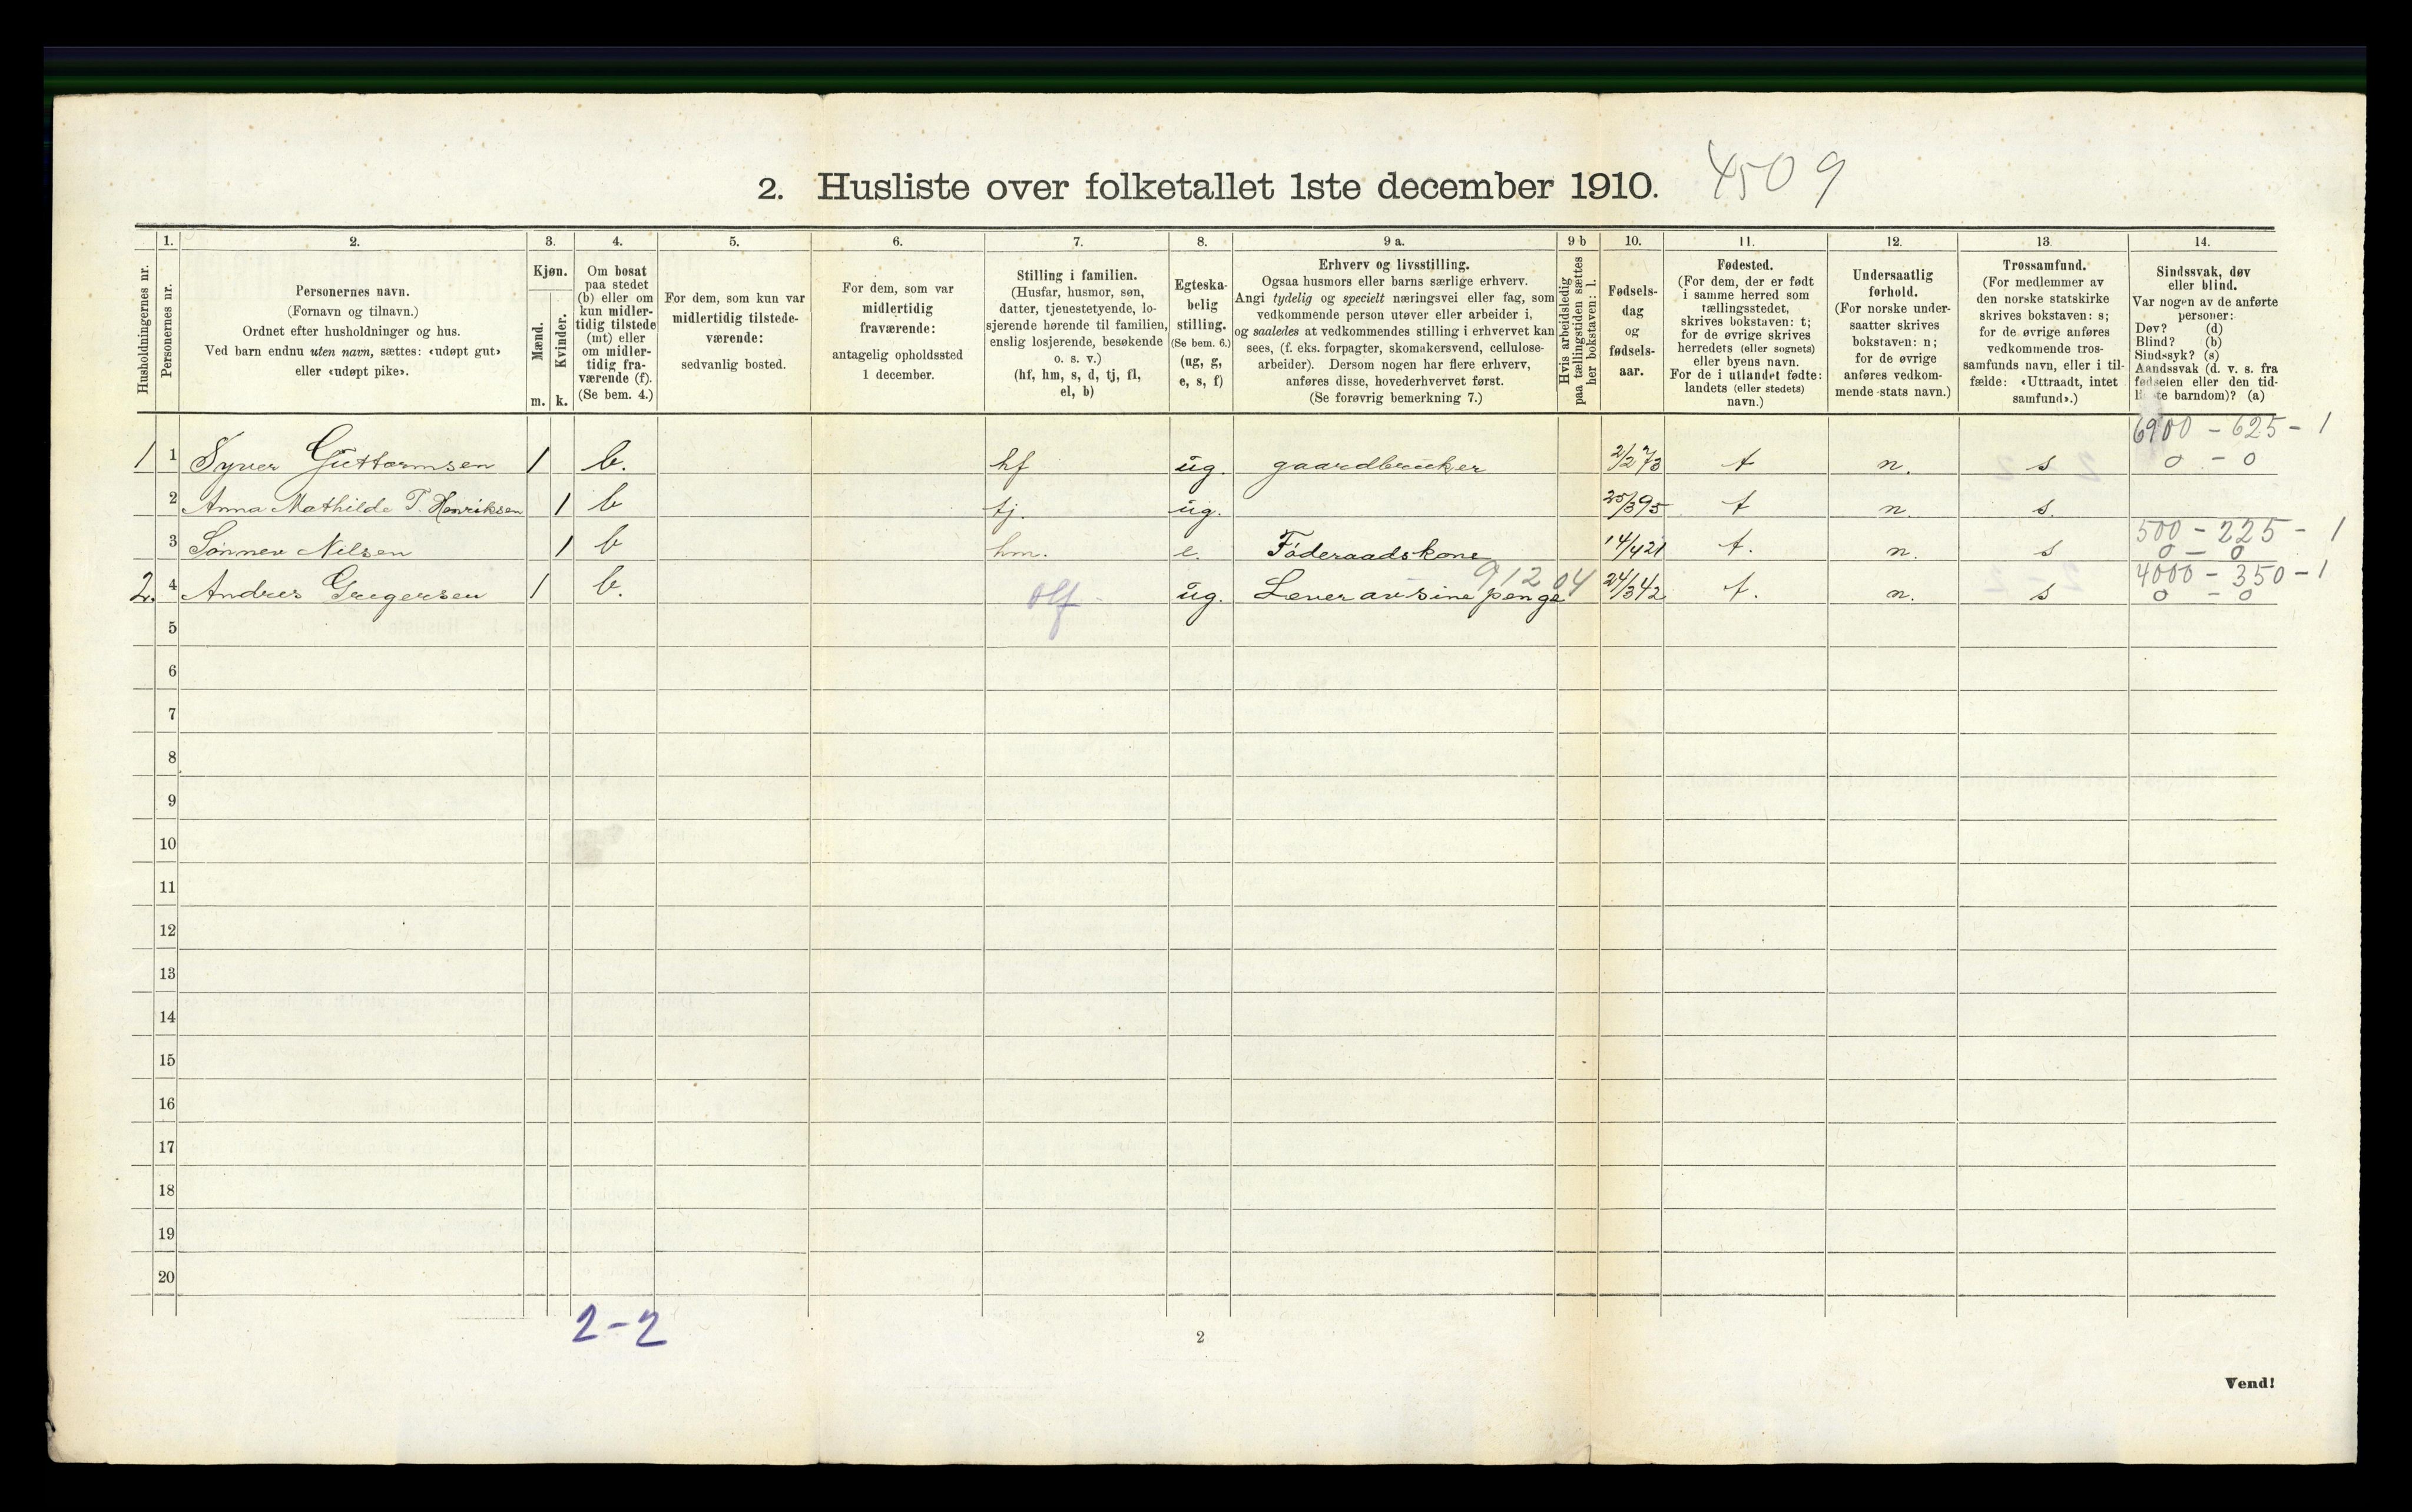 2. Husliste over folketallet 1ste december 1910. 4509
Husholdningernes nr.
1.
Personernes nr.
2.
Personernes navn.
(Fornavn og tilnavn.)
Ordnet efter husholdninger og hus.
Ved barn endnu uten navn, sættes: «udøpt gut»
eller «udøpt pike».
3.
Kjøn.
Mænd.
Kvinder.
m. k.
4.
Om bosat
paa stedet
(b) eller om
kun midler-
tidig tilstede
(mt) eller
om midler-
tidig fra-
værende (f).
(Se bem. 4.)
5.
For dem, som kun var
midlertidig tilstede-
værende:
sedvanlig bosted.
6.
For dem, som var
midlertidig
fraværende:
antagelig opholdssted
1 december.
7.
Stilling i familien.
(Husfar, husmor, søn,
datter, tjenestetyende, lo-
sjerende hørende til familien,
enslig losjerende, besøkende
o. s. v.)
(hf, hm, s, d, tj, fl,
el, b)
8.
Egteska-
belig
stilling.
(Se bem. 6.)
(ug, g,
e, s, f)
9 a.
Erhverv og livsstilling.
Ogsaa husmors eller barns særlige erhverv.
Angi tydelig og specielt næringsvei eller fag, som
vedkommende person utøver eller arbeider i,
og saaledes at vedkommendes stilling i erhvervet kan
sees, (f. eks. forpagter, skomakersvend, cellulose-
arbeider). Dersom nogen har flere erhverv,
anføres disse, hovederhvervet først.
(Se forøvrig bemerkning 7.)
9 b
Hvis arbeidsledig
paa tællingstiden sættes
her bokstaven: l.
10.
Fødsels-
dag
og
fødsels-
aar.
11.
Fødested.
(For dem, der er født
i samme herred som
tællingsstedet,
skrives bokstaven: t;
for de øvrige skrives
herredets (eller sognets)
eller byens navn.
For de i utlandet fødte:
landets (eller stedets)
navn.)
12.
Undersaatlig
forhold.
(For norske under-
saatter skrives
bokstaven: n;
for de øvrige
anføres vedkom-
mende stats navn.)
13.
Trossamfund.
(For medlemmer av
den norske statskirke
skrives bokstaven: s;
for de øvrige anføres
vedkommende tros-
samfunds navn, eller i til-
fælde: «Uttraadt, intet
samfund».)
14.
Sindssvak, døv
eller blind.
Var nogen av de anførte
personer:
Døv? (d)
Blind? (b)
Sindssyk? (s)
Aandssvak (d. v. s. fra
fødselen eller den tid-
ligste barndom)? (a)
6900 - 625 - 1
1 1 Syver Guttormsen 1 b. hf ug. gaardbruker 2/2 73 t n. s 0 - 0
2 Anna Mathilde T. Henriksen 1 b tj. ug. 25/3 95 t n. s.
500 - 225 - 1
3 Sønnev Nilsen 1 b hm. e. Føderaadskone 14/4 21 t. n. s 0 - 0
91204 4000 - 350 - 1
2. 4 Andres Gregersen 1 b. olf ug. Lever av sine penge 24/3 42 t. n. s 0 - 0
5
6
7
8
9
10
11
12
13
14
15
16
17
18
19
20
2-2
2
Vend!